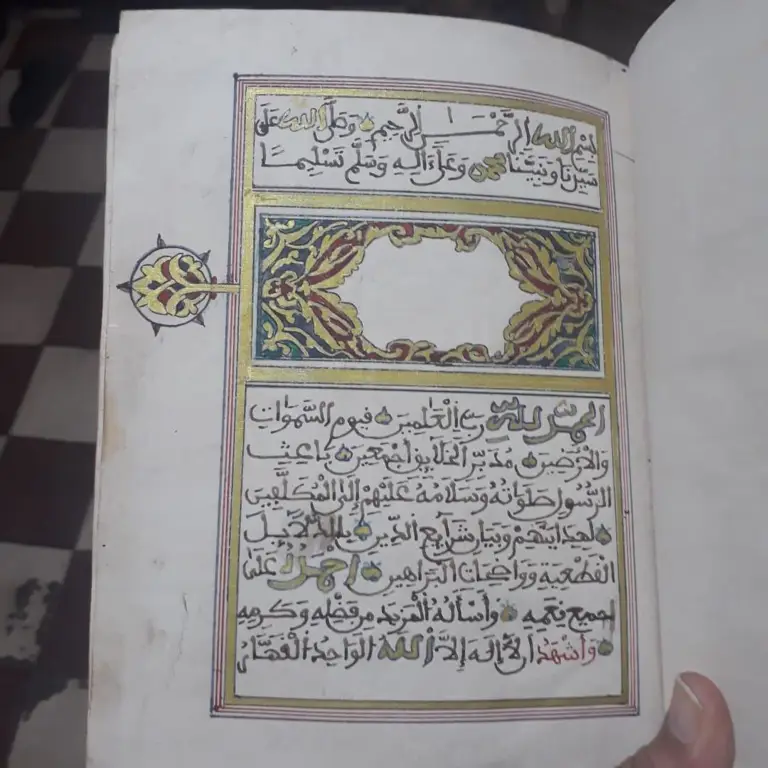 بسم الله الرحمن الرحيم وصلى الله على
سيدنا ونبينا محمد وعلى ءاله وسلم تسليما
الحمد لله رب العلمين قيوم السموات
والارضين مدبر الخلايق أجمعين باعث
الرسول صلواته وسلامه عليهم إلى المكلفين
لهدايتهم وبيان شرايع الدين بالدلايل
القطعية وواضحات البراهين احمده على
جميع نعمه وأسأله المزيد من فضله وكرمه
وأشهد أن لا إله إلا الله الواحد القهار